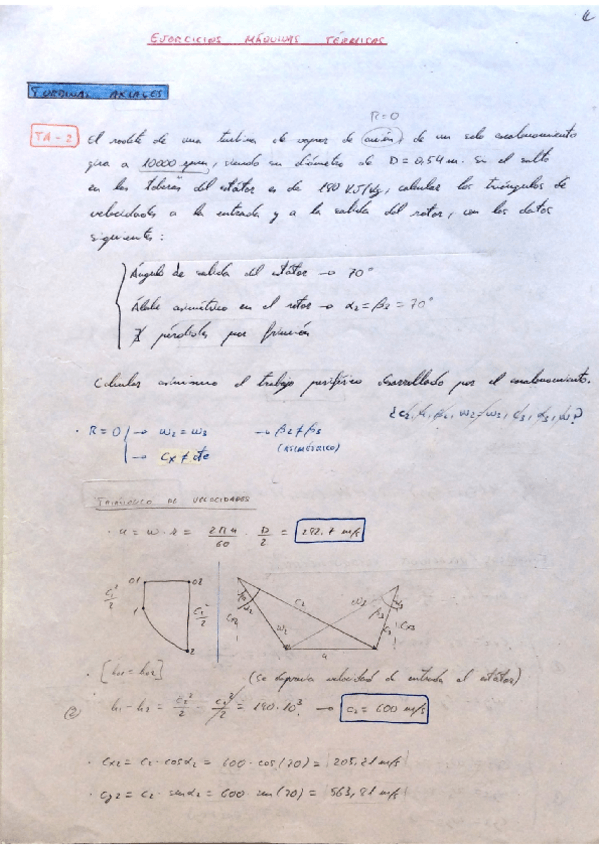 EJERCICIOS MÁQUINAS TÉRMICAS
TURBINAS AXIALES
R=0
TA-2 El rodete de una turbina de vapor de acción, de un solo escalonamiento
gira a 10000 rpm, siendo su diámetro de D=0,54 m. Si el salto
en las toberas del estátor es de 180 kJ/kg, calcular los triángulos de
velocidades a la entrada y a la salida del rotor, con los datos
siguientes:
Ángulo de salida del estátor → 70°
Álabe asimétrico en el rotor → α2 = β3 = 70°
∄ pérdidas por fricción
Calcular asimismo el trabajo periférico desarrollado por el escalonamiento.
· R=0 → w2 = w3 → β2 ≠ β3
→ Cx ≠ cte (ASIMÉTRICO)
TRIÁNGULO DE VELOCIDADES
· u = w · R = 2πn/60 · D/2 = 282.7 m/s
01 02
1
2
c2
w2
w3
u
Cx3
· [h01 = h02] (se desprecia velocidad de entrada al estátor)
② h1 - h2 = c2²/2 - c1²/2 = 180·10³ → c2 = 600 m/s
· Cx2 = c2 · cosα2 = 600 · cos(70) = 205,21 m/s
· Cy2 = c2 · senα2 = 600 · sen(70) = 563,81 m/s